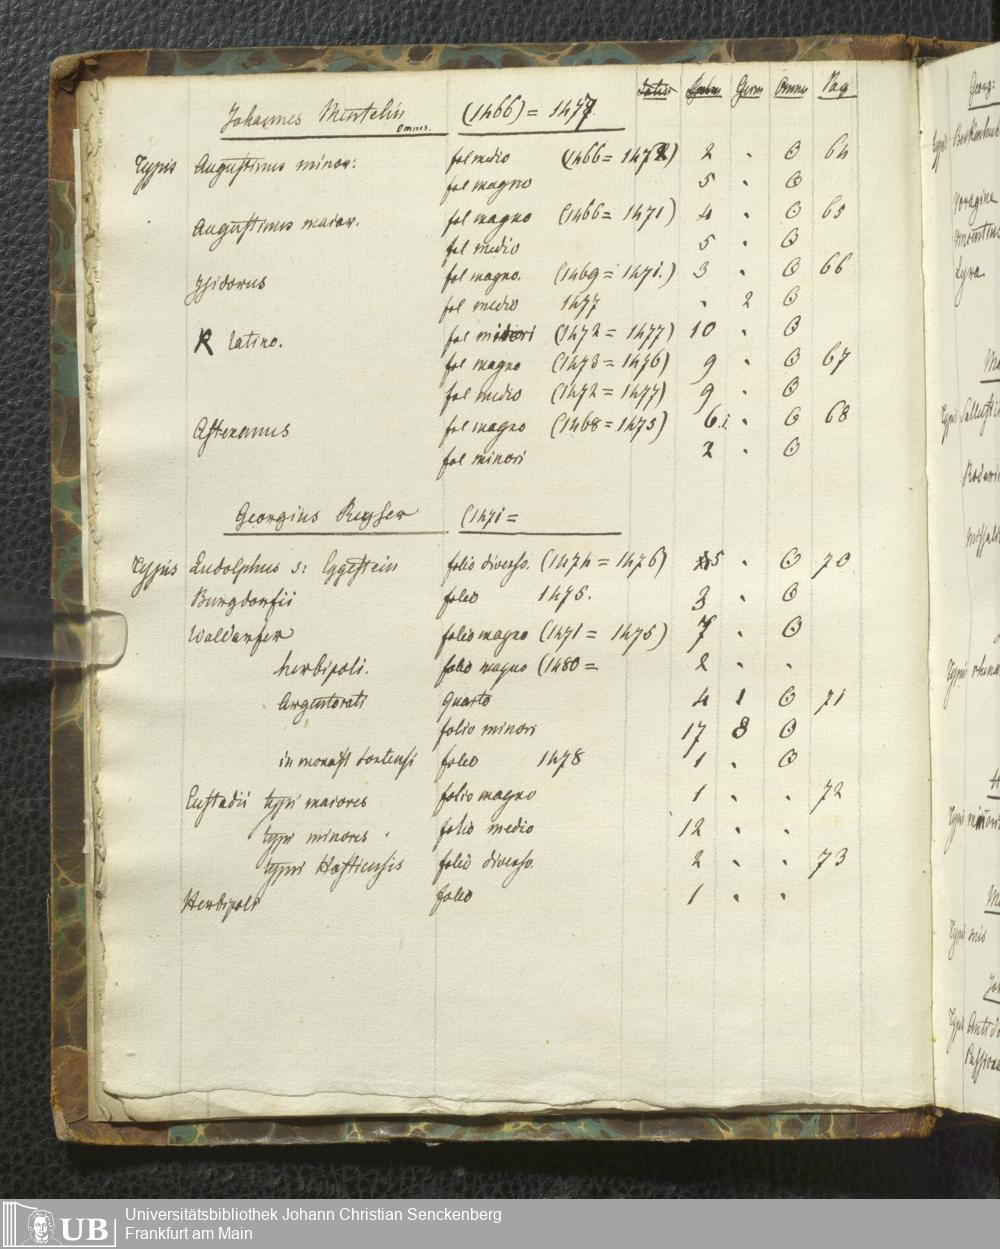 Germ Omnes Pag
Johannes Mentelin (1466) = 1477
omnes.
Typis Augustinus minor: fol medio (1466 = 1472) 2 . O 64
fol magno 5 . O
Augustinus maior. fol magno (1466 = 1471) 4 . O 65
fol medio 5 . O
Ysidorus fol magno. (1469 = 1471.) 3 . O 66
fol medio 1477 . 2 O
R latino. fol minori (1472 = 1477) 10 . O
fol magno (1473 = 1476) 9 . O 67
fol medio (1472 = 1477) 9 . O
Astexanus fol magno (1468 = 1473) 6.i. . O 68
fol minori 2 . O
Georgius Reyser (1471 =
Typis Ludolphus s: Eggestein folio diverso. (1474 = 1476) 5 . O 70
Burgdorfii folio 1475. 3 . O
Waldarfer folio magno (1471 = 1475) 7 . O
herbipoli. folio magno (1480 = 2 . .
Argentorati quarto 4 1 O 71
folio minori 17 8 O
in monast sortensi folio 1478 1 . O
Eustadii typi maiores folio magno 1 . . 72
typi minores . folio medio 12 . .
typi Hastiensis folio diverso. 2 . . 73
Herbipoli folio 1 . .
Georg:
Typis
Voragine
Lyra
Typis
Typis
Typis
Typis suis
Typis
Universitätsbibliothek Johann Christian Senckenberg
UB Frankfurt am Main